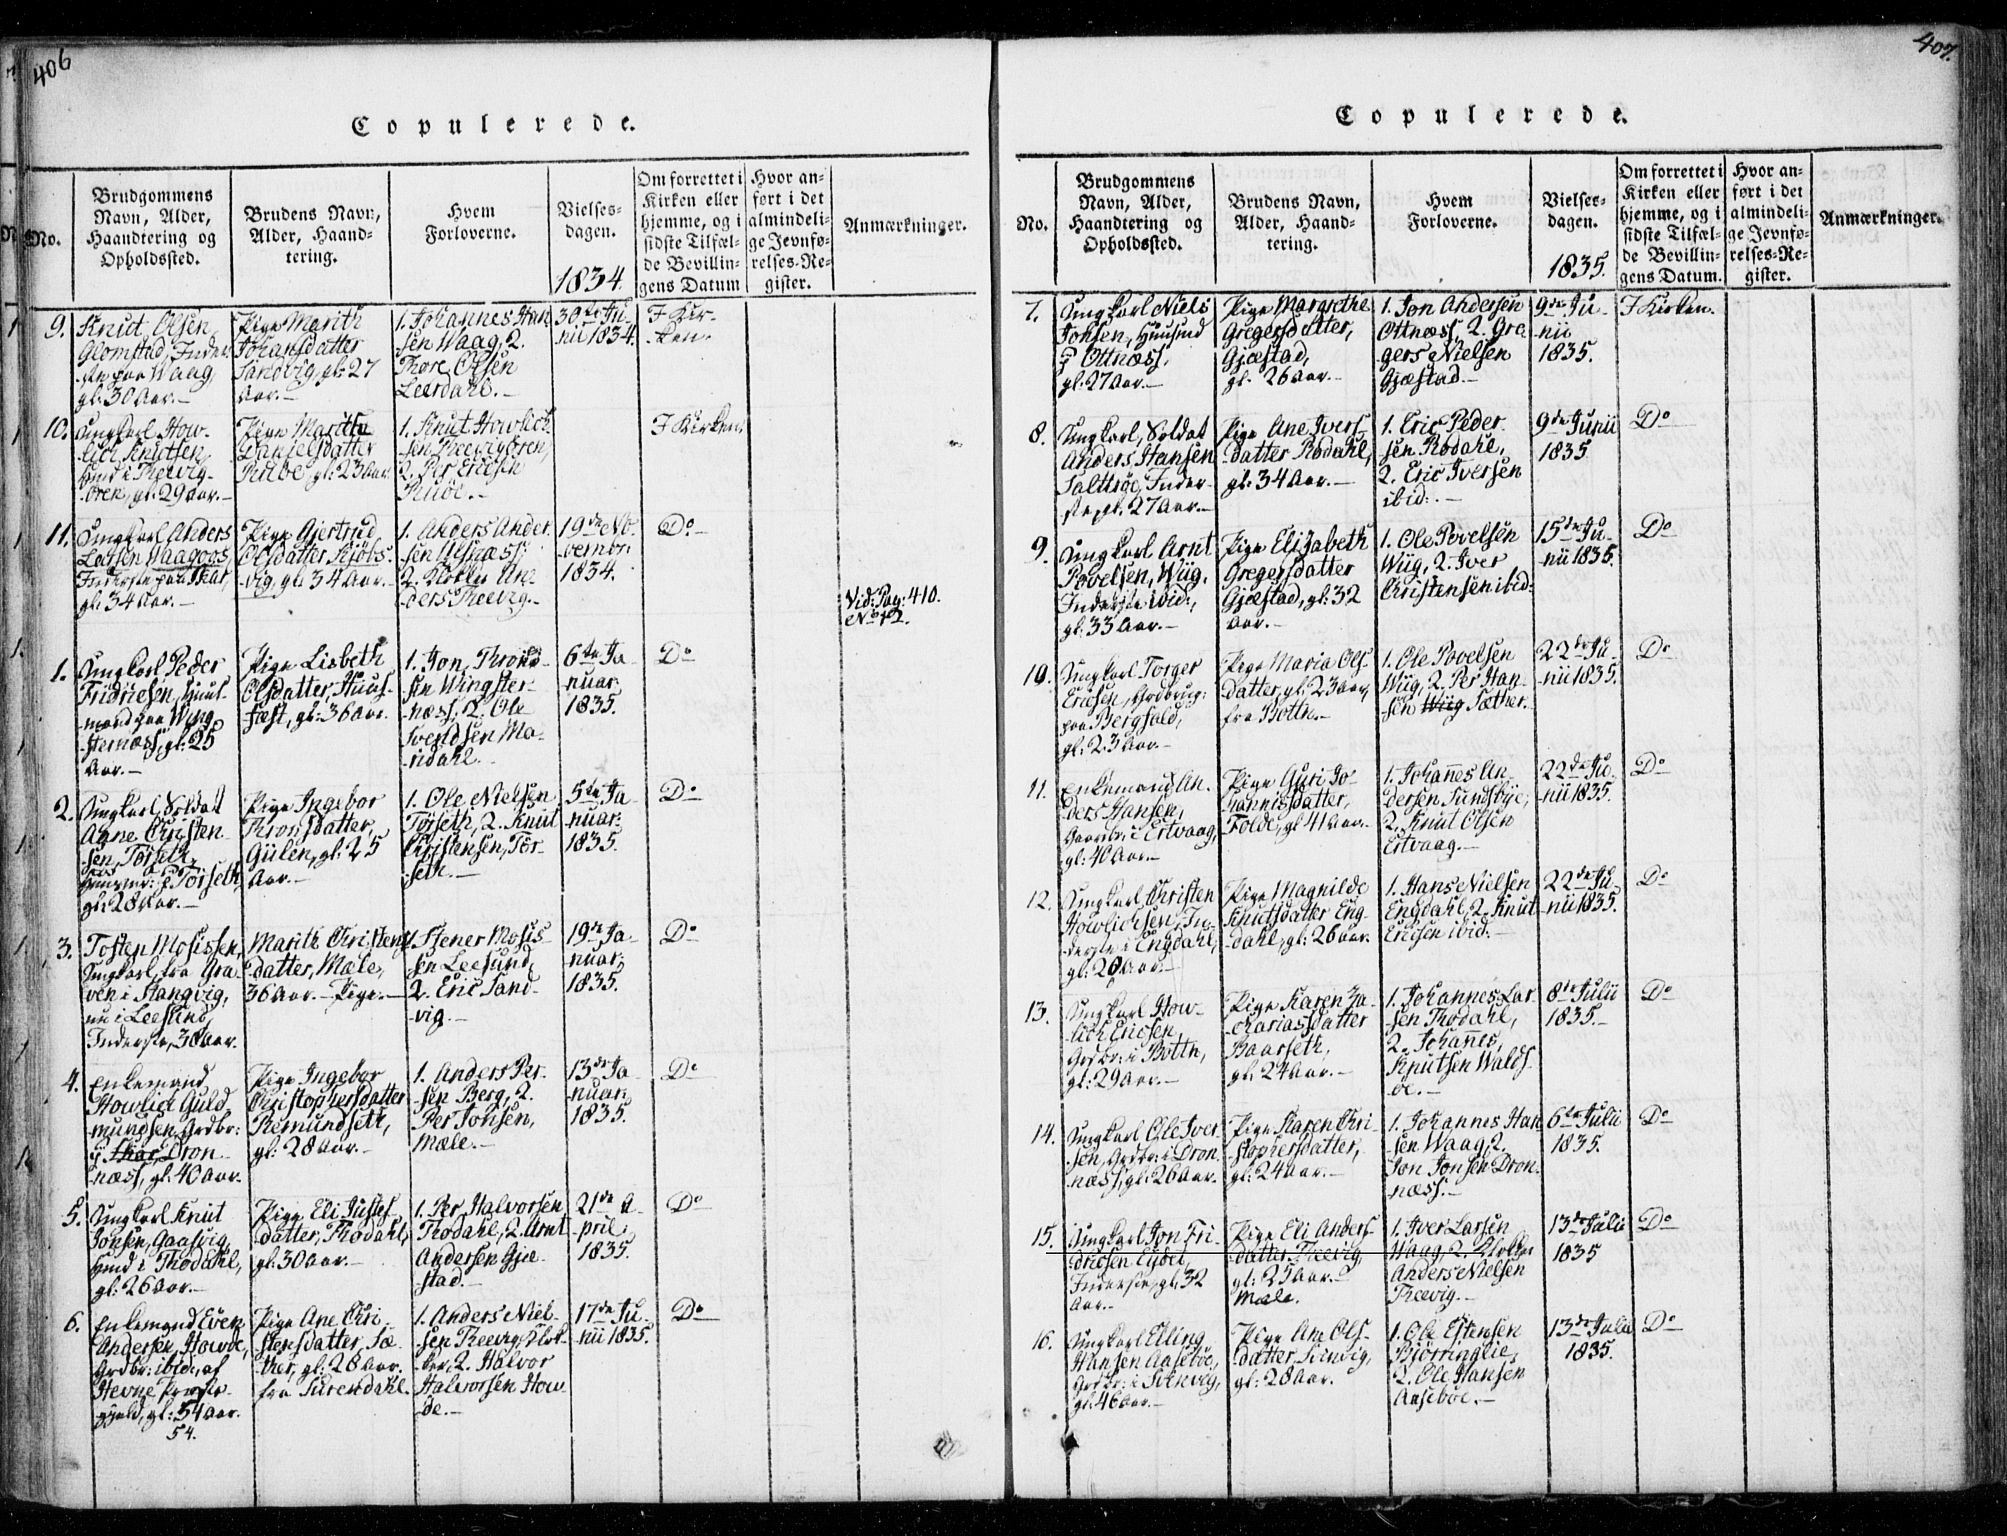 406
Copulerede.
No.
Brudgommens
Navn, Alder,
Haandtering og
Opholdssted.
Brudens Navn,
Alder, Haand-
tering.
Hvem
Forloverne.
Vielses-
dagen.
1834.
Om forrettet i
Kirken eller
hjemme, og i
sidste Tilfæl-
de Bevillin-
gens Datum
Hvor an-
ført i det
almindeli-
ge Jevnfø-
relses-Re-
gister.
Anmærkninger.
9.
Knut Olsen
Glomstad, Inder-
ste paa Waag,
gl: 30 Aar.—
Pige Marith
Johansdatter
Sandvig, gl: 27
Aar.—
1. Johannes Han
sen Waag, 2.
Thore Olsen
Leerdahl.—
30te Ju-
nii 1834.
I Kir-
ken.
10.
Ungkarl How-
lich Knutsen,
Huusd i Reevig-
ören, gl: 29 Aar.—
Pige Maritha
Danielsdatter
gl: 23 Aar
1. Knut Howlich-
sen Reevigören,
2. Per Ericsen
I Kirken.
11.
Ungkarl Anders
Larsen Waagoos,
Inderste paa Skar,
gl: 34 Aar.—
Pige Gjertrud
Olsdatter Kjöbs-
vig, gl: 34 Aar.—
1. Anders Ander-
sen
2. Klokker An-
ders Reevig.—
19de No-
vembr:
1834.
Do—
Vid: Pag: 410.
No 12.
1.
Ungkarl Peder
Fridricsen, Huus-
mand paa Wing-
sternæss, gl: 25
Aar.—
Pige Lisbeth
Olsdatter, Huus-
fæst, gl: 36 Aar.
1. Jon Thron-
sen Wingster-
næss, 2. Ole
Svendsen Mo-
ridahl.
6te Ja-
nuar:
1835.
Do
2.
Ungkarl Soldat
Aane Christen-
sen, Törseth,
Huusmr: p. Törseth,
gl: 28 Aar.—
Pige Ingebor
Thronsdatter,
Gülen, gl: 25
Aar.—
1. Ole Nielsen
Törseth, 2. Knut
Christensen, Tör-
seth.—
5te Ja-
nuar:
1835.
Do
3.
Tosten Mosissen,
Ungkarl, fra Gra-
ven i Stangvig,
nu i Leesund,
Inderste, 30 Aar.
Marith Christens
datter, Mæle,
36 Aar.— Pige.—
1. Stener Mosis-
sen Leesund,
2. Eric Sand-
vig.—
19de Ja-
nuar:
1835.
Do
4.
Enkemand
Howlich Guld-
mundsen, Grdbr:
i Skar, Dron-
næss, gl: 40 Aar.
Pige Ingebor
Christophersdatter
Remundseth,
gl: 28 Aar.—
1. Anders Per-
sen Berg, 2.
Per Jonsen,
Mæle.—
13de Ja-
nuar:
1835.
Do
5.
Ungkarl Knut
Jonsen, Gaasvig,
Hmd i Thodahl,
gl: 26 Aar.
Pige Eli Justes-
datter, Thodahl,
gl: 30 Aar.—
1. Per Halvorsen
Thodahl, 2. Arnt
Andersen Gjæ-
stad.—
21de A-
pril:
1835.
Do
6.
Enkemand Even
Andersen, Howde,
Grdbr: ibid:, af
Hevne Præste-
gjeld, gl: 54 Aar.
54.
Pige Ane Chri-
stensdatter, Sæ-
ther, gl: 28 Aar.
fra Surendahl.
1. Anders Niel-
sen Reevig, Klok-
ker, 2. Halvor
Halvorsen How-
de.—
17de Ju-
nii 1835.
Do
407.
Copulerede.
No.
Brudgommens
Navn, Alder,
Haandtering og
Opholdssted.
Brudens Navn,
Alder, Haand-
tering.
Hvem
Forloverne.
Vielses-
dagen.
1835.
Om forrettet i
Kirken eller
hjemme, og i
sidste Tilfæl-
de Bevillin-
gens Datum.
Hvor an-
ført i det
almindeli-
ge Jevnfø-
relses-Re-
gister.
Anmærkninger.
7.
Ungkarl Niels
Jonsen, Huusmd
p Ottnæss,
gl: 27 Aar.—
Pige Margrethe
Gregersdatter,
Gjæstad,
gl: 26 Aar.—
1. Jon Andersen
Ottnæss, 2. Gre-
gers Nielsen
Gjæstad.—
9de Ju-
nii
1835.
I Kirken.
8.
Ungkarl, Soldat
Anders Hansen
Saltröe, Inder-
ste, gl: 27 Aar.—
Pige Ane Ivers-
datter Rodahl,
gl: 34 Aar.—
1. Eric Peder-
sen Rodahl,
2. Eric Iversen
ibid:.—
9de Junii
1835.
Do
9.
Ungkarl Arnt
Povelsen, Wüg,
Inderste ibid:,
gl: 33 Aar.—
Pige Elizabeth
Gregersdatter
Gjæstad, gl: 32
Aar.—
1. Ole Povelsen
Wüg, 2. Iver
Christensen ibid:
15de Ju-
nii 1835.
Do
10.
Ungkarl Torger
Ericsen, Grdbrug:
paa Bergfald,
gl: 23 Aar.—
Pige Maria Ols-
datter, gl: 23 Aar,
fra Bottn.—
1. Ole Povelsen
Wüg, 2. Per Han-
sen Wüg Sæther.
22de Ju-
nii 1835.
Do
11.
Enkemand An-
ders Hansen,
Gaardbr: i Ertvaag,
gl: 40 Aar.—
Pige Guri Jo-
hannisdatter,
Folde, gl: 41 Aar.
1. Johannes An-
dersen Sundsbye,
2. Knut Olsen
Ertvaag.—
22de Ju-
nii 1835.
Do
12.
Ungkarl Christen
Howlichsen, In-
derste i Engdahl,
gl: 28 Aar.—
Pige Magnilde
Knutsdatter Eng-
dahl, gl: 26 Aar.
1. Hans Nielsen
Engdahl, 2. Knut
Ericsen ibid:—
22de Ju-
nii 1835.
Do
13.
Ungkarl How-
lich Ericsen,
Grdbr: i Bottn,
gl: 29 Aar.—
Pige Karen Za-
chariasdatter
Baarseth,
gl: 24 Aar.—
1. Johannes Lar-
sen Thodahl,
2. Johannes
Knutsen Walds-
öe.—
8de Julii
1835.—
Do
14.
Ungkarl Ole Iver-
sen, Grdbr: i Dron-
næss, gl: 26 Aar.
Pige Karen Chri-
stophersdatter,
gl: 24 Aar.—
1. Johannes Han
sen Waag, 2.
Jon Jonsen Dron-
næss.—
6te Julii
1835.
Do
15.
Ungkarl Jon Fri-
dricsen Eydet,
Inderste, gl: 32
Aar.—
Pige Eli Anders-
datter, Reevig,
gl: 25 Aar.—
Mæle.
1. Iver Larsen
Waag, 2. Klokker
Anders Nielsen
Reevig.—
13de Julii
1835
Do
16.
Ungkarl Elling
Hansen Aaseböe,
Grdbr: i Svinvig,
gl: 46 Aar.—
Pige Ane Ols-
datter, Svinvig,
gl: 28 Aar.
1. Ole Estensen
Björringlie,
2. Ole Hansen
Aaseböe.—
13de Julii
1835.
Do